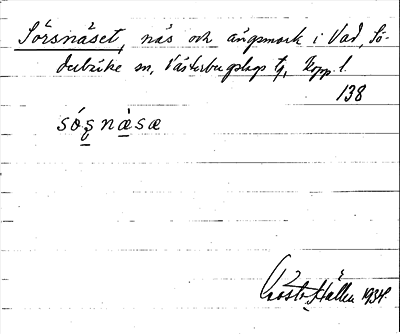 Sörsnäset, näs och ängsmark i Vad, Sö-
derbärke sn, Västerbergslags tg, Kopp. l.
138
sǿṣnæ̀sæ
Gösta Hallén 1934.